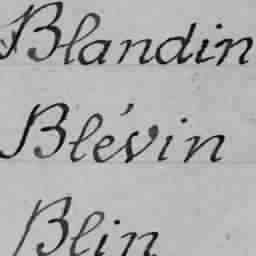 Blandin
Blévin
Blin